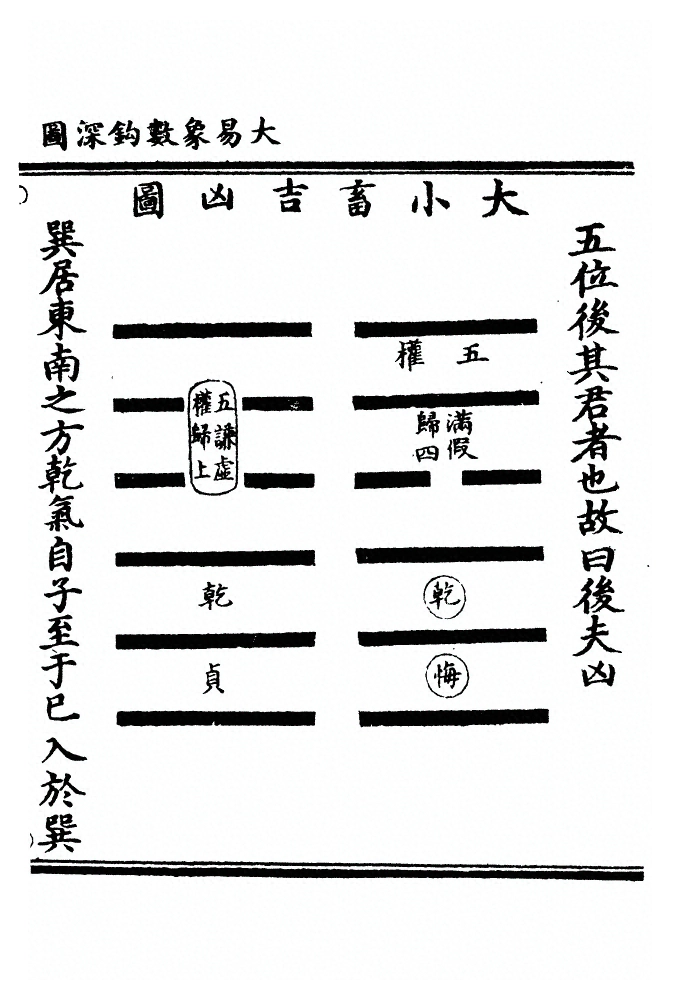 大易象數鈎深圖
五位後其君者也故曰後夫凶
大小畜吉凶圖
五權
滿假
歸四
乾
悔
五謙虛
權歸上
乾
貞
巽居東南之方乾氣自子至于巳入於巽